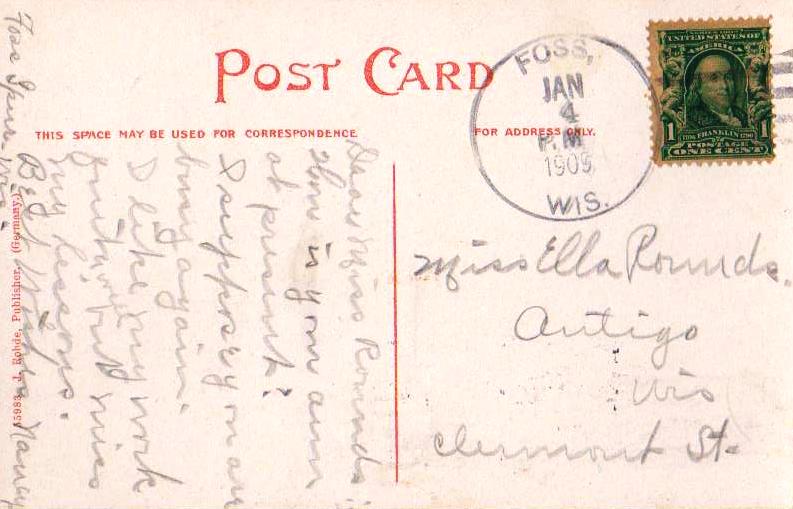 POST CARD
THIS SPACE MAY BE USED FOR CORRESPONDENCE
FOR ADDRESS ONLY.
FOSS,
JAN
4
P.M
1909
WIS.
SERIES 1902
UNITED STATES OF
AMERICA
1 FRANKLIN 1
POSTAGE
ONE CENT
Miss Ella Rounds.
Antigo
Wis
Clermont St.
Dear Miss Rounds:
How is your arm
at present?
I suppose you are
busy again.
I like my work
but miss
my lessons.
Best Wishes Nancy
Foss Spur
15983 J. Rohde, Publisher, (Germany.)